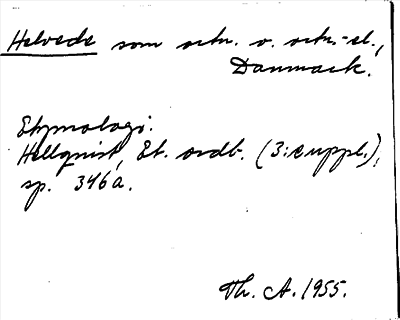 Helvede som ortn. o. ortn.-el.,
Danmark.
Etymologi:
Hellquist, Et. ordb. (3:suppl.),
sp. 346a.
Th. A. 1955.